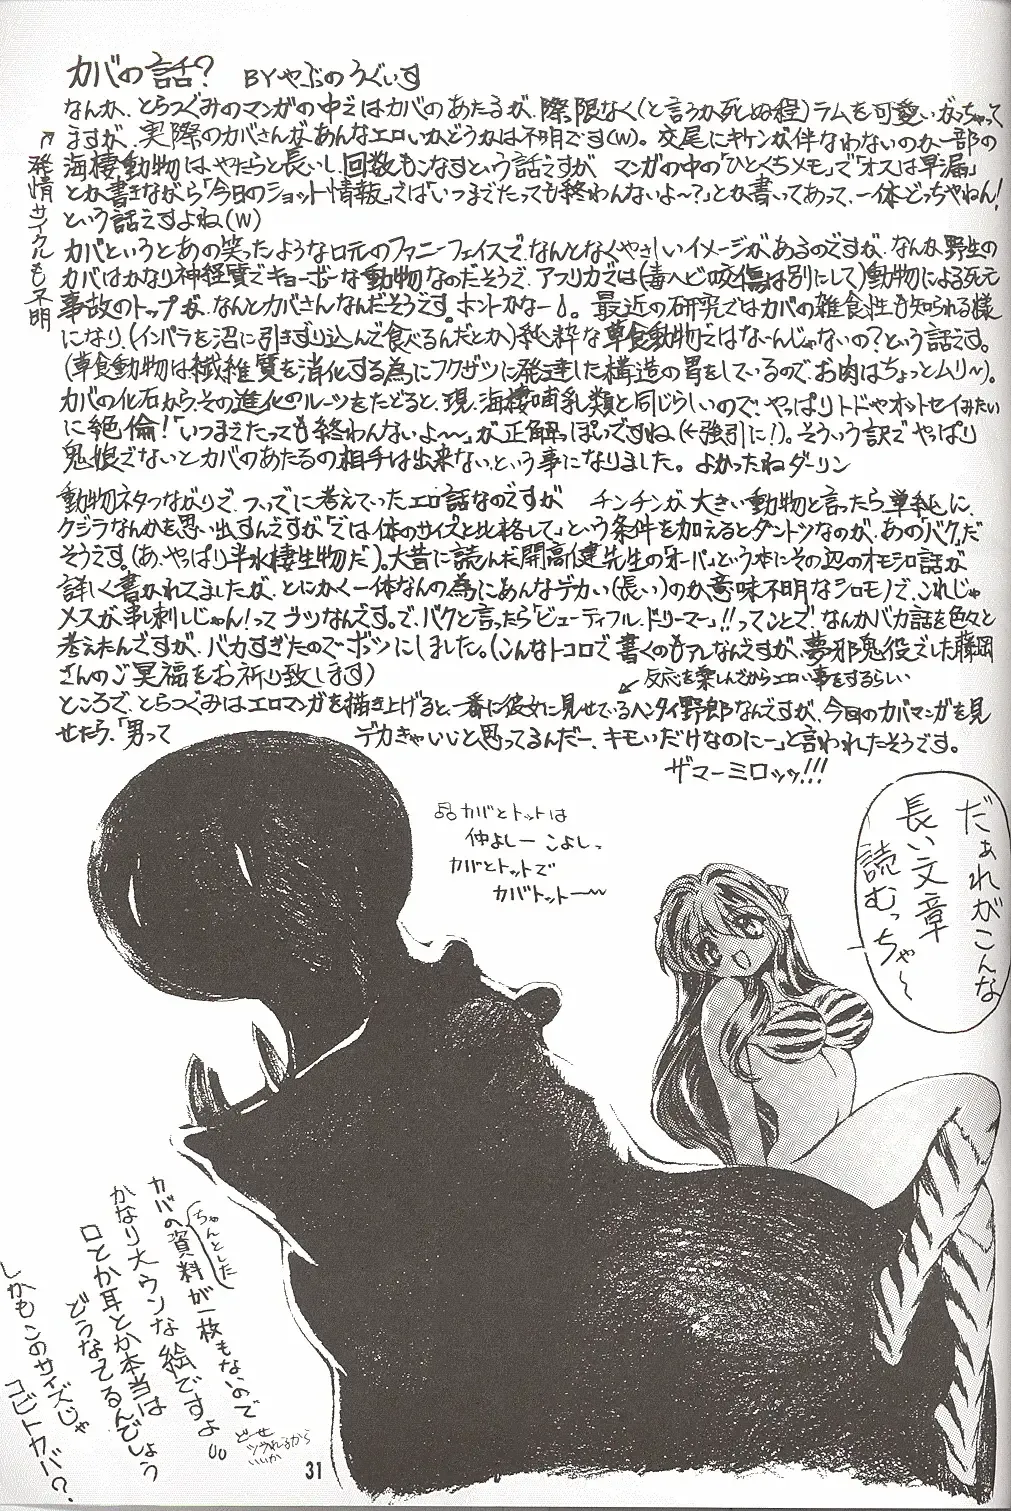 カバの話? BYやぶのうぐいす
なんか、とらつぐみのマンガの中ではカバのあたるが、際限なく(と言うか死ぬ程)ラムを可愛いがっちゃって
ますが、実際のカバさんが、あんなエロいかどうかは不明です(W)。交尾にキケンが伴なわないのか一部の
海棲動物は、やたらと長いし、回数もこなすという話ですが マンガの中の「ひとくちメモ」で「オスは早漏」
とか書きながら「今日のショット情報」では「いつまでたっても終わんないよ〜?」とか書いてあって、一体どっちやねん!
という話ですよね(W)
↖発情サイクルも不明
カバというとあの笑ったような口元のファニーフェイスで、なんとなくやさしいイメージがあるのですが、なんか野生の
カバはかなり神経質でキョーボーな動物なのだそうで、アフリカでは(毒ヘビ咬傷は別にして)動物による死亡
事故のトップが、なんとカバさんなんだそうです。ホントかなー。最近の研究ではカバの雑食性も知られる様
になり、(インパラを沼に引きずり込んで食べるんだとか)純粋な草食動物ではないんじゃないの?という話です。
(草食動物は繊維質を消化する為にフクザツに発達した構造の胃をしているので、お肉はちょっとムリ〜)。
カバの化石から、その進化のルーツをたどると、現・海棲哺乳類と同じらしいので、やっぱりトドやオットセイみたい
に絶倫!「いつまでたっても終わんないよ〜〜」が正解っぽいですね(←強引に!)。そういう訳でやっぱり
鬼娘でないとカバのあたるの相手は出来ない、という事になりました。よかったねダーリン
動物ネタつながりで、ついでに考えていったエロ話なのですが チンチンが大きい動物と言ったら単純に、
クジラなんかを思い出すんですが「では体のサイズと比格して」という条件を加えるとダントツなのが、あの「バク」だ
そうです。(あ、やっぱり半水棲生物だ)。大昔に読んだ開高健先生の「オーパ」という本にその辺のオモシロ話が
詳しく書かれてましたが、とにかく一体なんの為にあんなデカい(長い)のか意味不明なシロモノで、これじゃ
メスが串刺しじゃん!ってブツなんです。で、バクと言ったら「ビューティフル・ドリーマー」!!ってことで、なんかバカ話を色々と
考えたんですが、バカすぎたのでボツにしました。(こんなトコロで書くのもアレなんですが、夢邪鬼役でした藤岡
さんのご冥福をお祈り致します)
↙反応を楽しんでからエロい事をするらしい
ところで、とらつぐみはエロマンガを描き上げると、一番に彼女に見せているヘンタイ野郎なんですが、今回のカバマンガを見
せたら、「男って デカきゃいいと思ってるんだー、キモいだけなのにー」と言われたそうです。
ザマーミロッッ!!!
だぁれがこんな
長い文章
読むっちゃ〜
♫カバとトットは
仲よしー こよしっ
カバとトットで
カバトットー〜
カバの(ちゃんとした)資料が一枚もないので
かなり大ウソな絵ですよ
口とか耳とか本当は
どうなってるんでしょう
しかもこのサイズじゃ
コビトカバ?
どーせ
ツブれるから
いいか
31